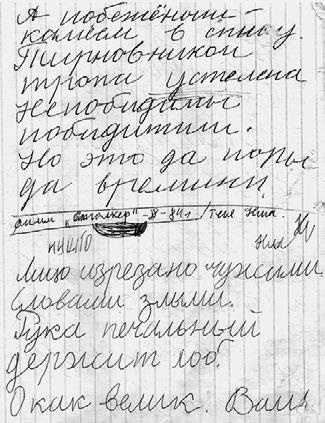 А побежёный –
камнем в спину.
Тирновником
тропа устелена
непобидимы
победители.
Но это да поры
да времини
филм „Сталкер" – – 84 г. / Теле Киш.
Лицо изрезано чужими
словами злыми.
Рука печальный
держит лоб.
О как велик. Ваш